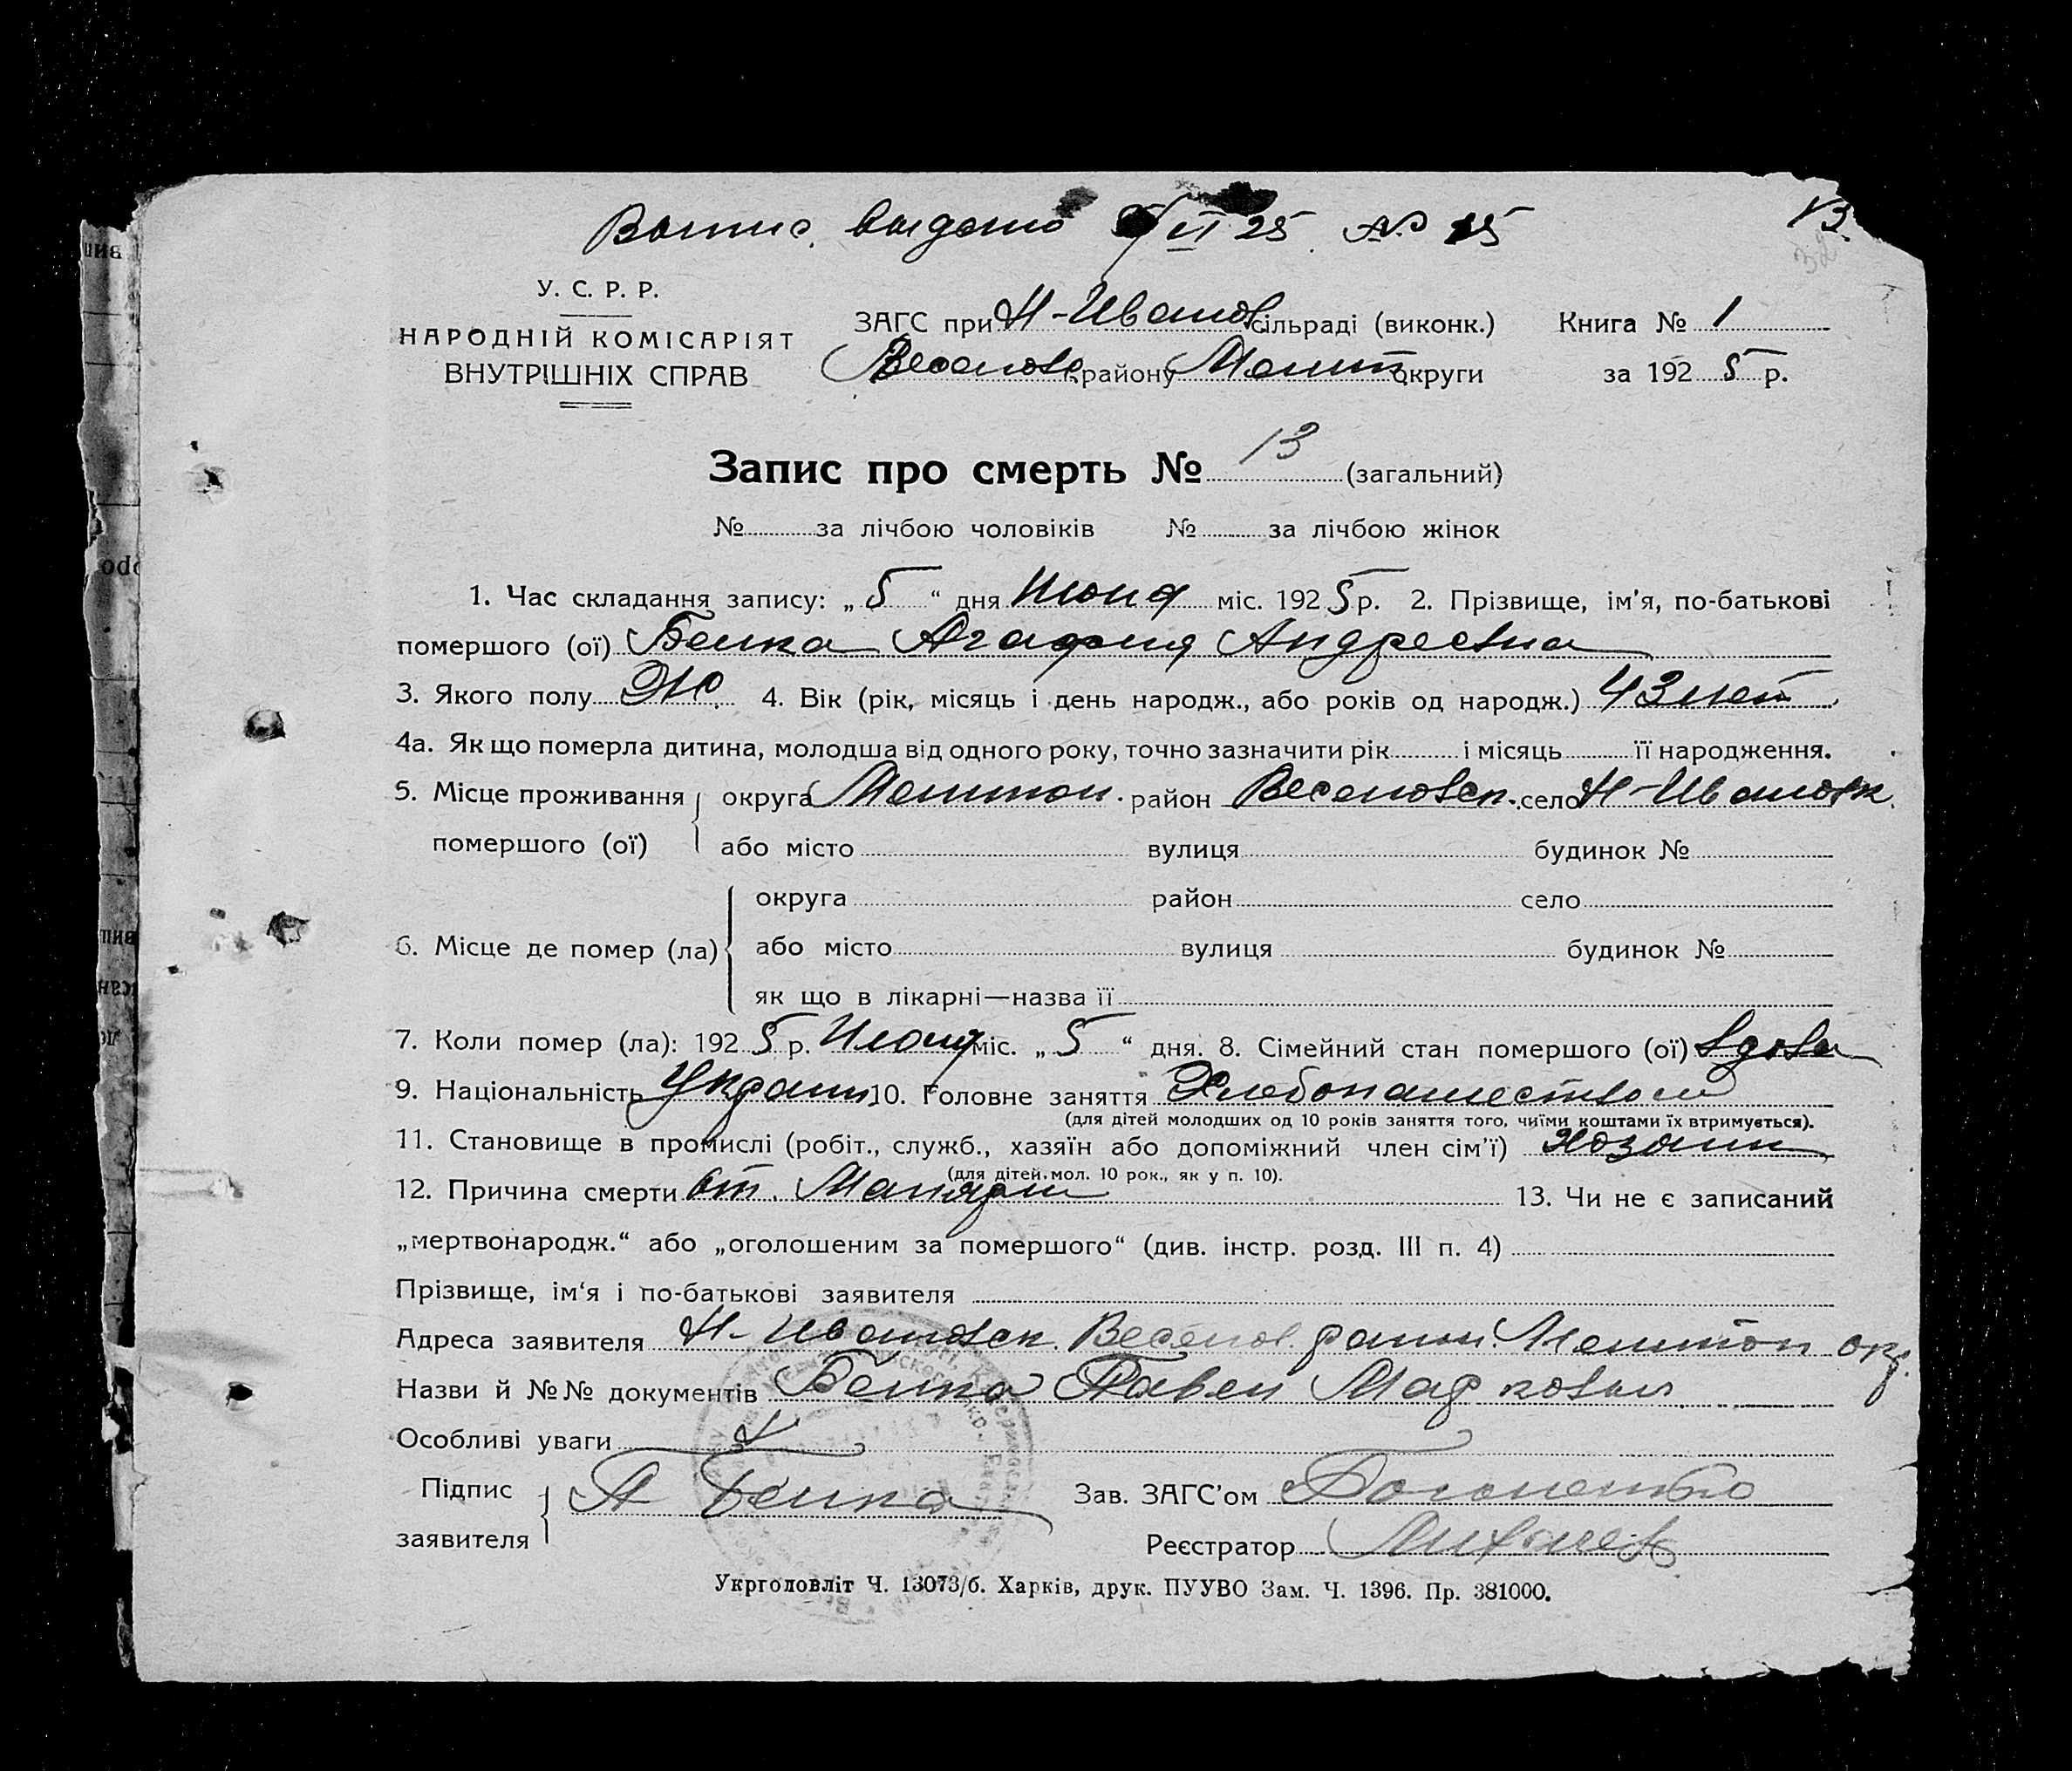 Выпис. выдано 5/VI 25. № 15
13.
32
У. С. Р. Р.
НАРОДНІЙ КОМІСАРІЯТ
ВНУТРІШНІХ СПРАВ
ЗАГС при Н-Иванов. сільраді (виконк.) Книга № 1
Веселовск. району Мелит. округи за 1925 р.
Запис про смерть № 13 (загальний)
№ за лічбою чоловіків № за лічбою жінок
1. Час складання запису: „5“ дня Июня міс. 1925 р. 2. Прізвище, ім'я, по-батькові
помершого (ої) Белка Агафия Андреевна
3. Якого полу Ж. 4. Вік (рік, місяць і день народж., або років од народж.) 43 лет
4а. Як що померла дитина, молодша від одного року, точно зазначити рік і місяць її народження.
5. Місце проживання округа Мелитоп. район Веселовск. село Н-Ивановк.
помершого (ої) або місто вулиця будинок №
округа район село
6. Місце де помер (ла) або місто вулиця будинок №
як що в лікарні—назва її
7. Коли помер (ла): 1925 р. Июня міс. „5“ дня. 8. Сімейний стан помершого (ої) вдова
9. Національність Украин. 10. Головне заняття Хлебопашеством
(для дітей молодших од 10 років заняття того, чиїми коштами їх втримується).
11. Становище в промислі (робіт., служб., хазяїн або допоміжний член сім'ї) хозяин
(для дітей мол. 10 рок., як у п. 10).
12. Причина смерти от. Малярии 13. Чи не є записаний
„мертвонародж.“ або „оголошеним за помершого“ (див. інстр. розд. III п. 4)
Прізвище, ім‘я і по-батькові заявителя
Адреса заявителя Н-Ивановск. Веселов. район. Мелитоп окр.
Назви й №№ документів Белка Павел Маркович
Особливі уваги
Підпис П Белка Зав. ЗАГС'ом
заявителя Реєстратор
Укрголовліт Ч. 13073/б. Харків, друк. ПУУВО Зам. Ч. 1396. Пр. 381000.